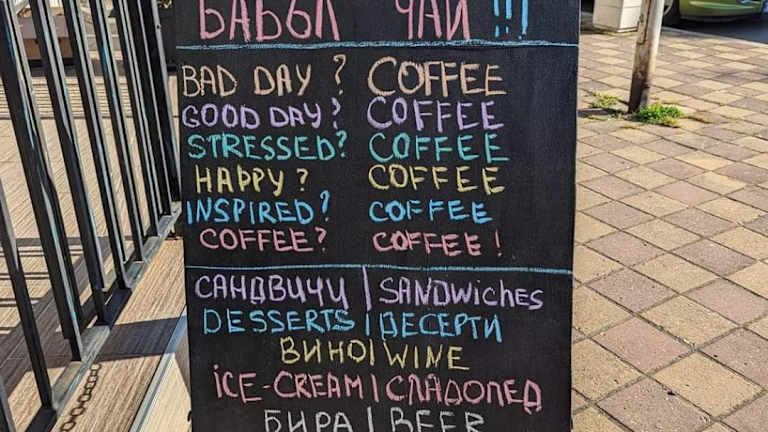 БАБЪЛ ЧАЙ !!!
BAD DAY? COFFEE
GOOD DAY? COFFEE
STRESSED? COFFEE
HAPPY? COFFEE
INSPIRED? COFFEE
COFFEE? COFFEE!
САНДВИЧИ | SANDWICHES
DESSERTS | ДЕСЕРТИ
ВИНО | WINE
ICE-CREAM | СЛАДОЛЕД
БИРА | BEER